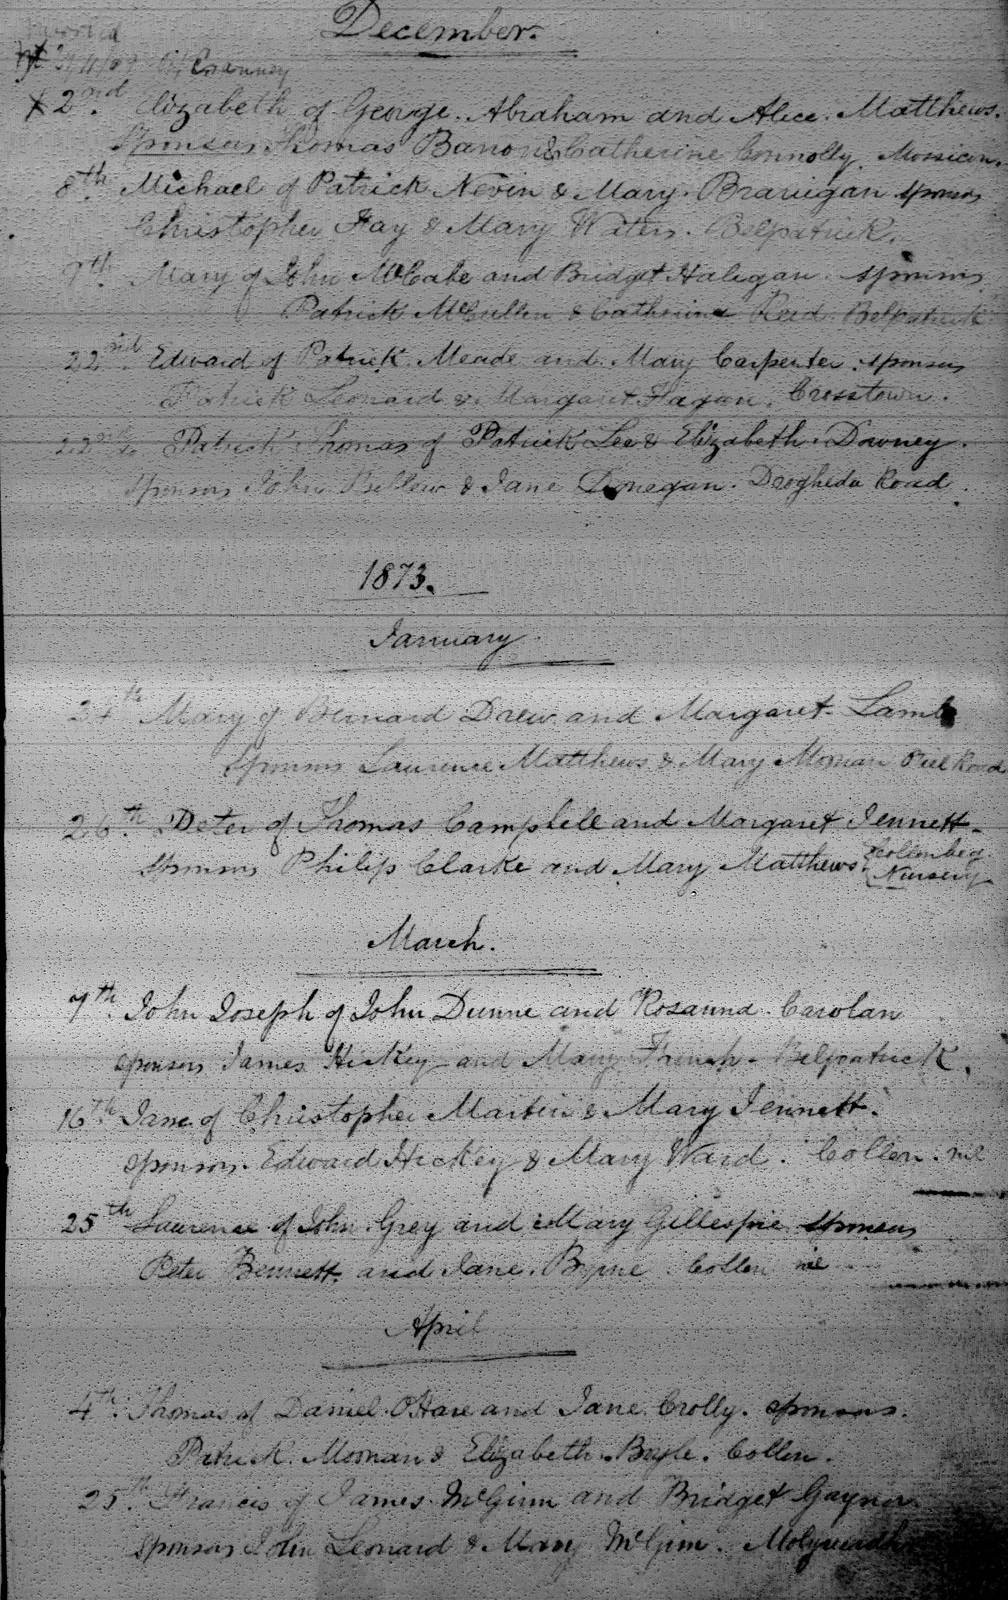 December.
2nd. Elizabeth of George. Abraham and Alice. Matthews.
Sponsors Thomas Banon & Catherine Connolly.
8th Michael of Patrick Nevin & Mary. Branigan sponsors
Christopher Fay & Mary Waters. Belpatrick.
Mary of John McCabe and Bridget Halegan. sponsors
Patrick McCullen & Catherine Reed. Belpatrick
22nd. Edward of Patrick. Meade and. Mary Carpenter. sponsors
Patrick Leonard & Margaret Fagan. Crosstown.
22nd Patrick Thomas of Patrick Lee & Elizabeth. Downey.
sponsors John Bellew & Jane Donegan. Drogheda Road.
1873.
January.
Mary of Bernard Drew and Margaret Lamb
sponsors Laurence Matthews & Mary Mornan Road
26th. Peter of Thomas Campbell and Margaret Jennett.
sponsors Philip Clarke and Mary Matthews. Collenbeg
Nursery
March.
7th. John Joseph of John Dunne and Rosanna Carolan
sponsors James Hickey and Mary French. Belpatrick.
16th. Jane of Christopher Martin & Mary Jennett.
sponsors. Edward Hickey & Mary Ward. Collen.
25th Laurence of John Grey and Mary Gillespie sponsors
Peter Bennett. and Jane. Byrne Collen
April
4th. Thomas of Daniel O'Hare and Jane Crolly. sponsors.
Patrick. Mornan & Elizabeth. Collen.
25th. Francis of James McGinn and Bridget Gaynor.
sponsors John Leonard & Mary McGinn.